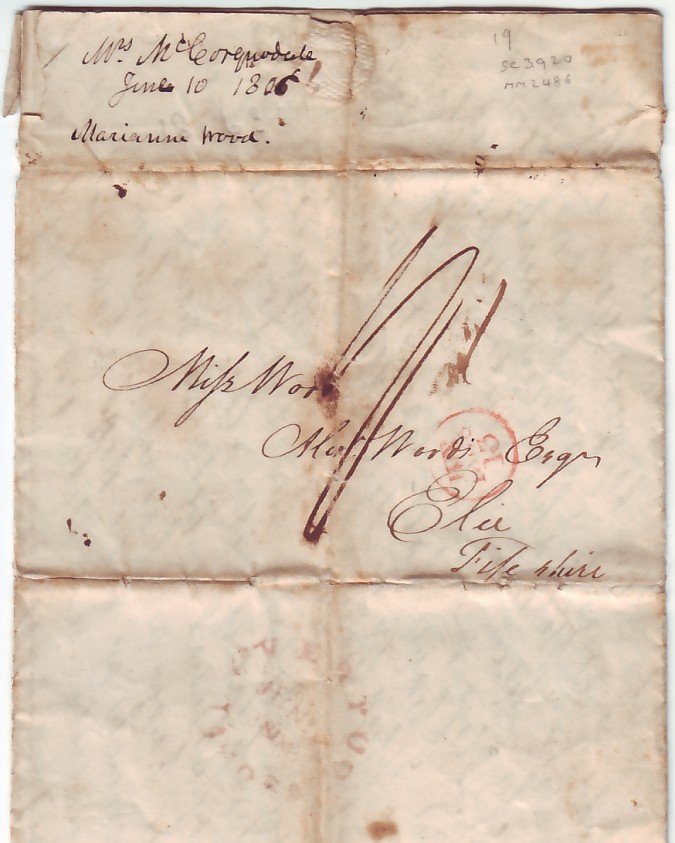 Mrs McCorquodale
June 10 1806
Marianne Wood.
19
SC3920
MM2486
Miss Wood
Alexr Woods Esqr
Elie
Fife shire